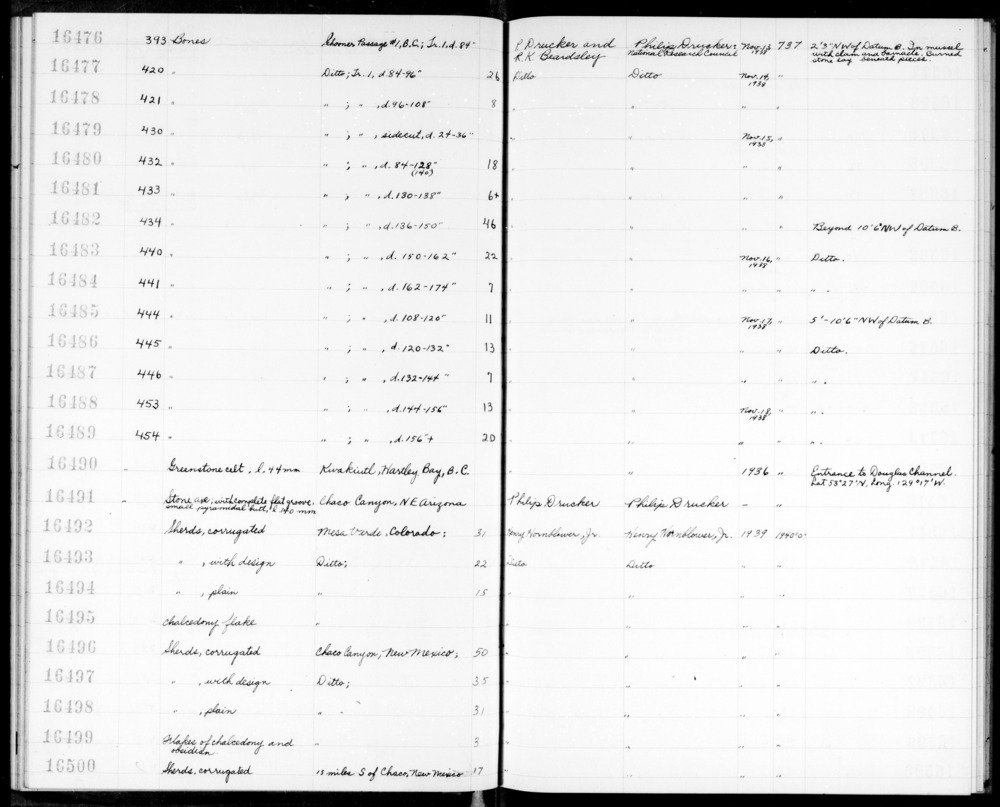 16476 393 Bones Schooner Passage #1, B.C.; Tr. 1, d. 84" P Drucker and R.K. Beardsley Philip Drucker: National Research Council Nov. 13, 1938 737 2'3" NW of Datum B. In mussel with clam and barnacle. Burned stone lay beneath pieces.
16477 420 " Ditto; Tr. 1, d. 84-96" 26 Ditto Ditto Nov. 14, 1938 "
16478 421 " " ; " , d. 96-108" 8 " " " "
16479 430 " " ; " , sidecut, d. 24-36" " " Nov. 15, 1938 "
16480 432 " " ; " , d. 84-128" (140) 18 " " " "
16481 433 " " ; " , d. 130-138" 6+ " " " "
16482 434 " " ; " , d. 136-150" 46 " " " " Beyond 10'6" NW of Datum B.
16483 440 " " ; " , d. 150-162" 22 " " Nov. 16, 1938 " Ditto.
16484 441 " " ; " , d. 162-174" 7 " " " " " .
16485 444 " " ; " , d. 108-120" 11 " " Nov. 17, 1938 " 5'-10'6" NW of Datum B.
16486 445 " " ; " , d. 120-132" 13 " " " " Ditto.
16487 446 " " ; " , d. 132-144" 7 " " " " " .
16488 453 " " ; " , d. 144-156" 13 " " Nov. 18, 1938 " " .
16489 454 " " ; " , d. 156"+ 20 " " " " " .
16490 - Greenstone celt, l. 44 mm Kwakiutl, Hartley Bay, B.C. " " 1936 " Entrance to Douglas Channel. Lat 53°27'N, Long. 129°17'W.
16491 Stone axe; with complete flat groove. small pyramidal butt, l. 140 mm Chaco Canyon, NE Arizona Philip Drucker Philip Drucker " "
16492 Sherds, corrugated Mesa Verde, Colorado; 31 Henry Hornblower, Jr. Henry Hornblower, Jr. 1939 1940
16493 " , with design Ditto; 22 Ditto Ditto " "
16494 " , plain " 15 " " " "
16495 chalcedony flake " " " " "
16496 Sherds, corrugated Chaco Canyon, New Mexico; 50 " " " "
16497 " , with design Ditto; 35 " " " "
16498 " , plain " . 31 " " " "
16499 Flakes of chalcedony and obsidian " 3 " " " "
16500 Sherds, corrugated 15 miles S of Chaco, New Mexico 17 " " " "